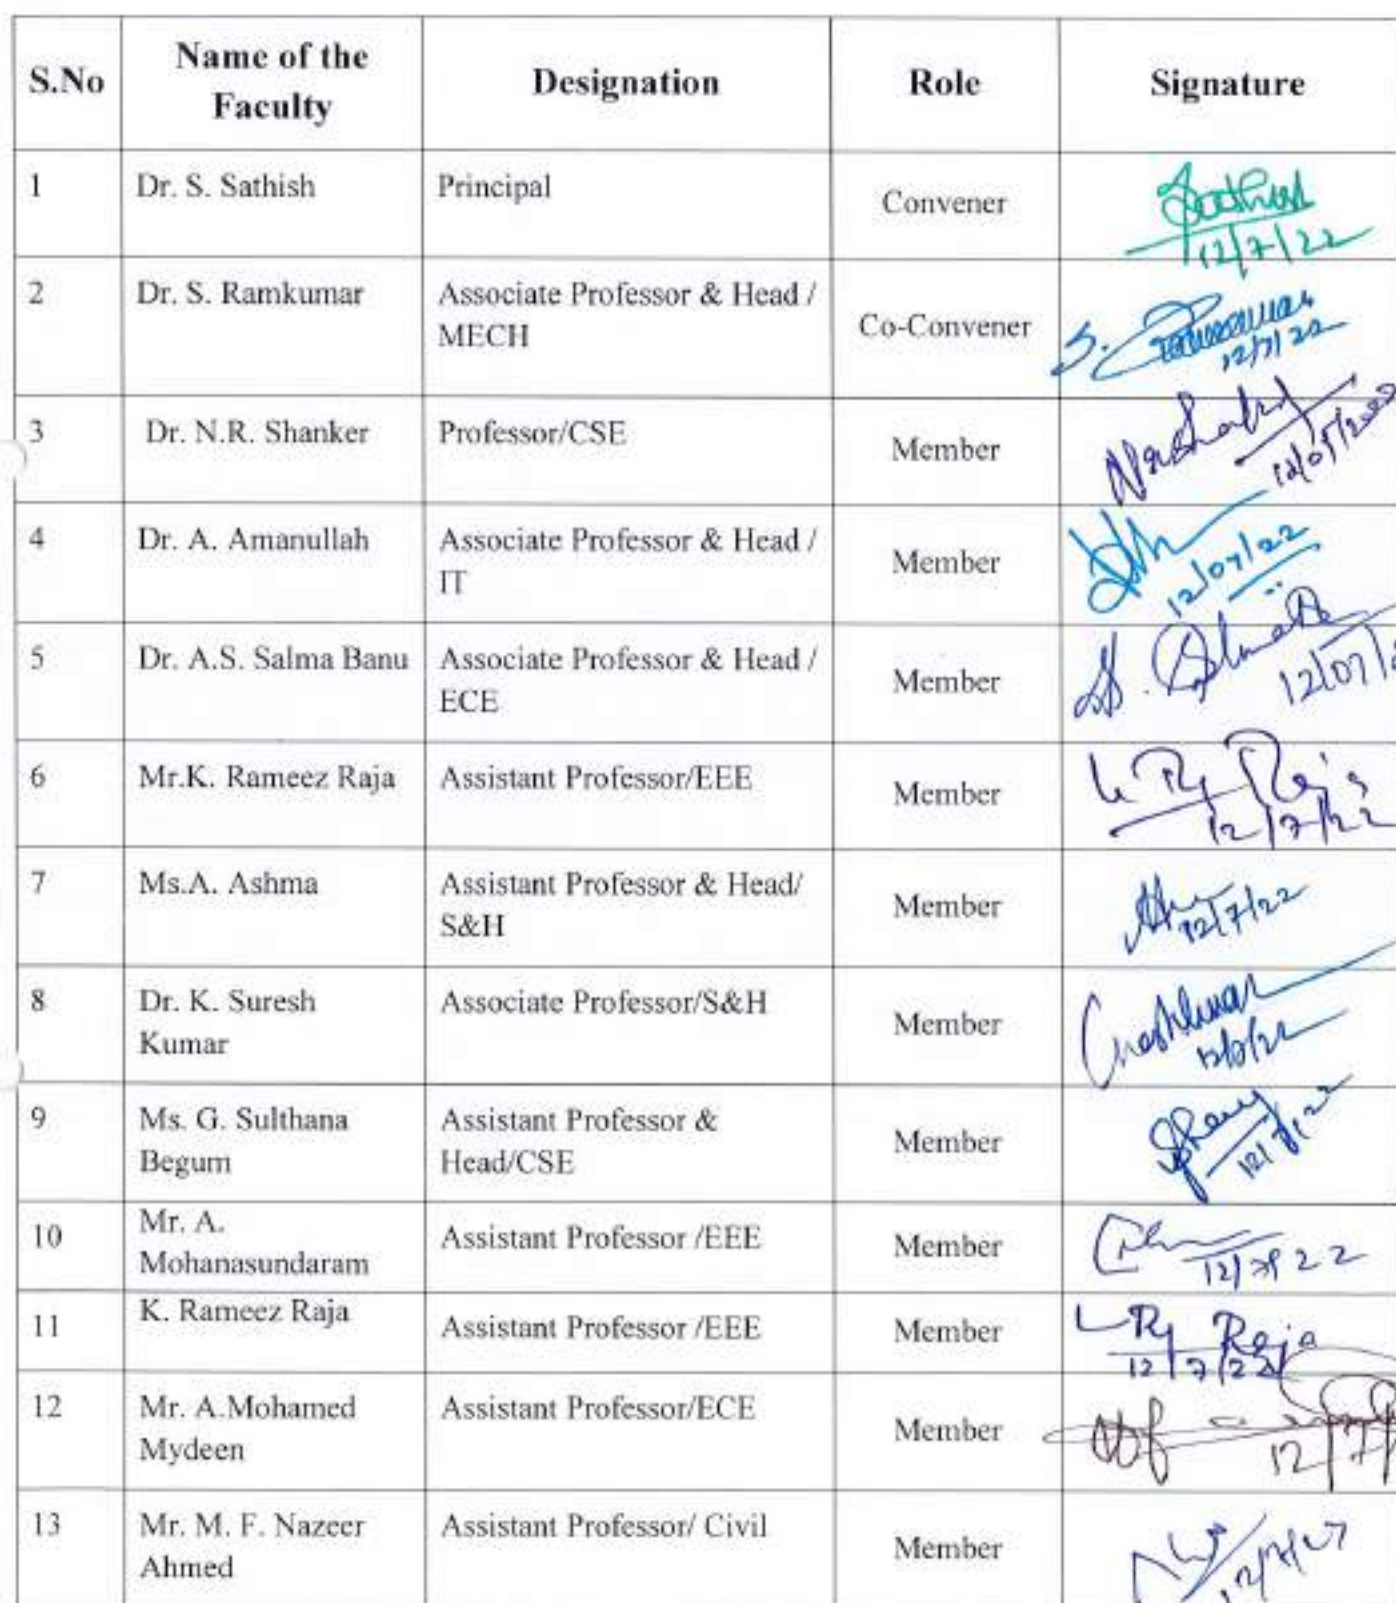 S.No Name of the Faculty Designation Role Signature
1 Dr. S. Sathish Principal Convener Sathish
12/7/22
2 Dr. S. Ramkumar Associate Professor & Head / Co-Convener S. Ramkumar
MECH 12/7/22
3 Dr. N.R. Shanker Professor/CSE Member
4 Dr. A. Amanullah Associate Professor & Head / Member
IT 12/07/22
5 Dr. A.S. Salma Banu Associate Professor & Head / Member
ECE 12/07/2
6 Mr.K. Rameez Raja Assistant Professor/EEE Member Raja
12/7/22
7 Ms.A. Ashma Assistant Professor & Head/ Member
S&H 12/7/22
8 Dr. K. Suresh Associate Professor/S&H Member
Kumar
9 Ms. G. Sulthana Assistant Professor & Member
Begum Head/CSE 12/7/22
10 Mr. A. Assistant Professor /EEE Member
Mohanasundaram
11 K. Rameez Raja Assistant Professor /EEE Member Raja
12/7/22
12 Mr. A.Mohamed Assistant Professor/ECE Member
Mydeen 12/7/
13 Mr. M. F. Nazeer Assistant Professor/ Civil Member
Ahmed